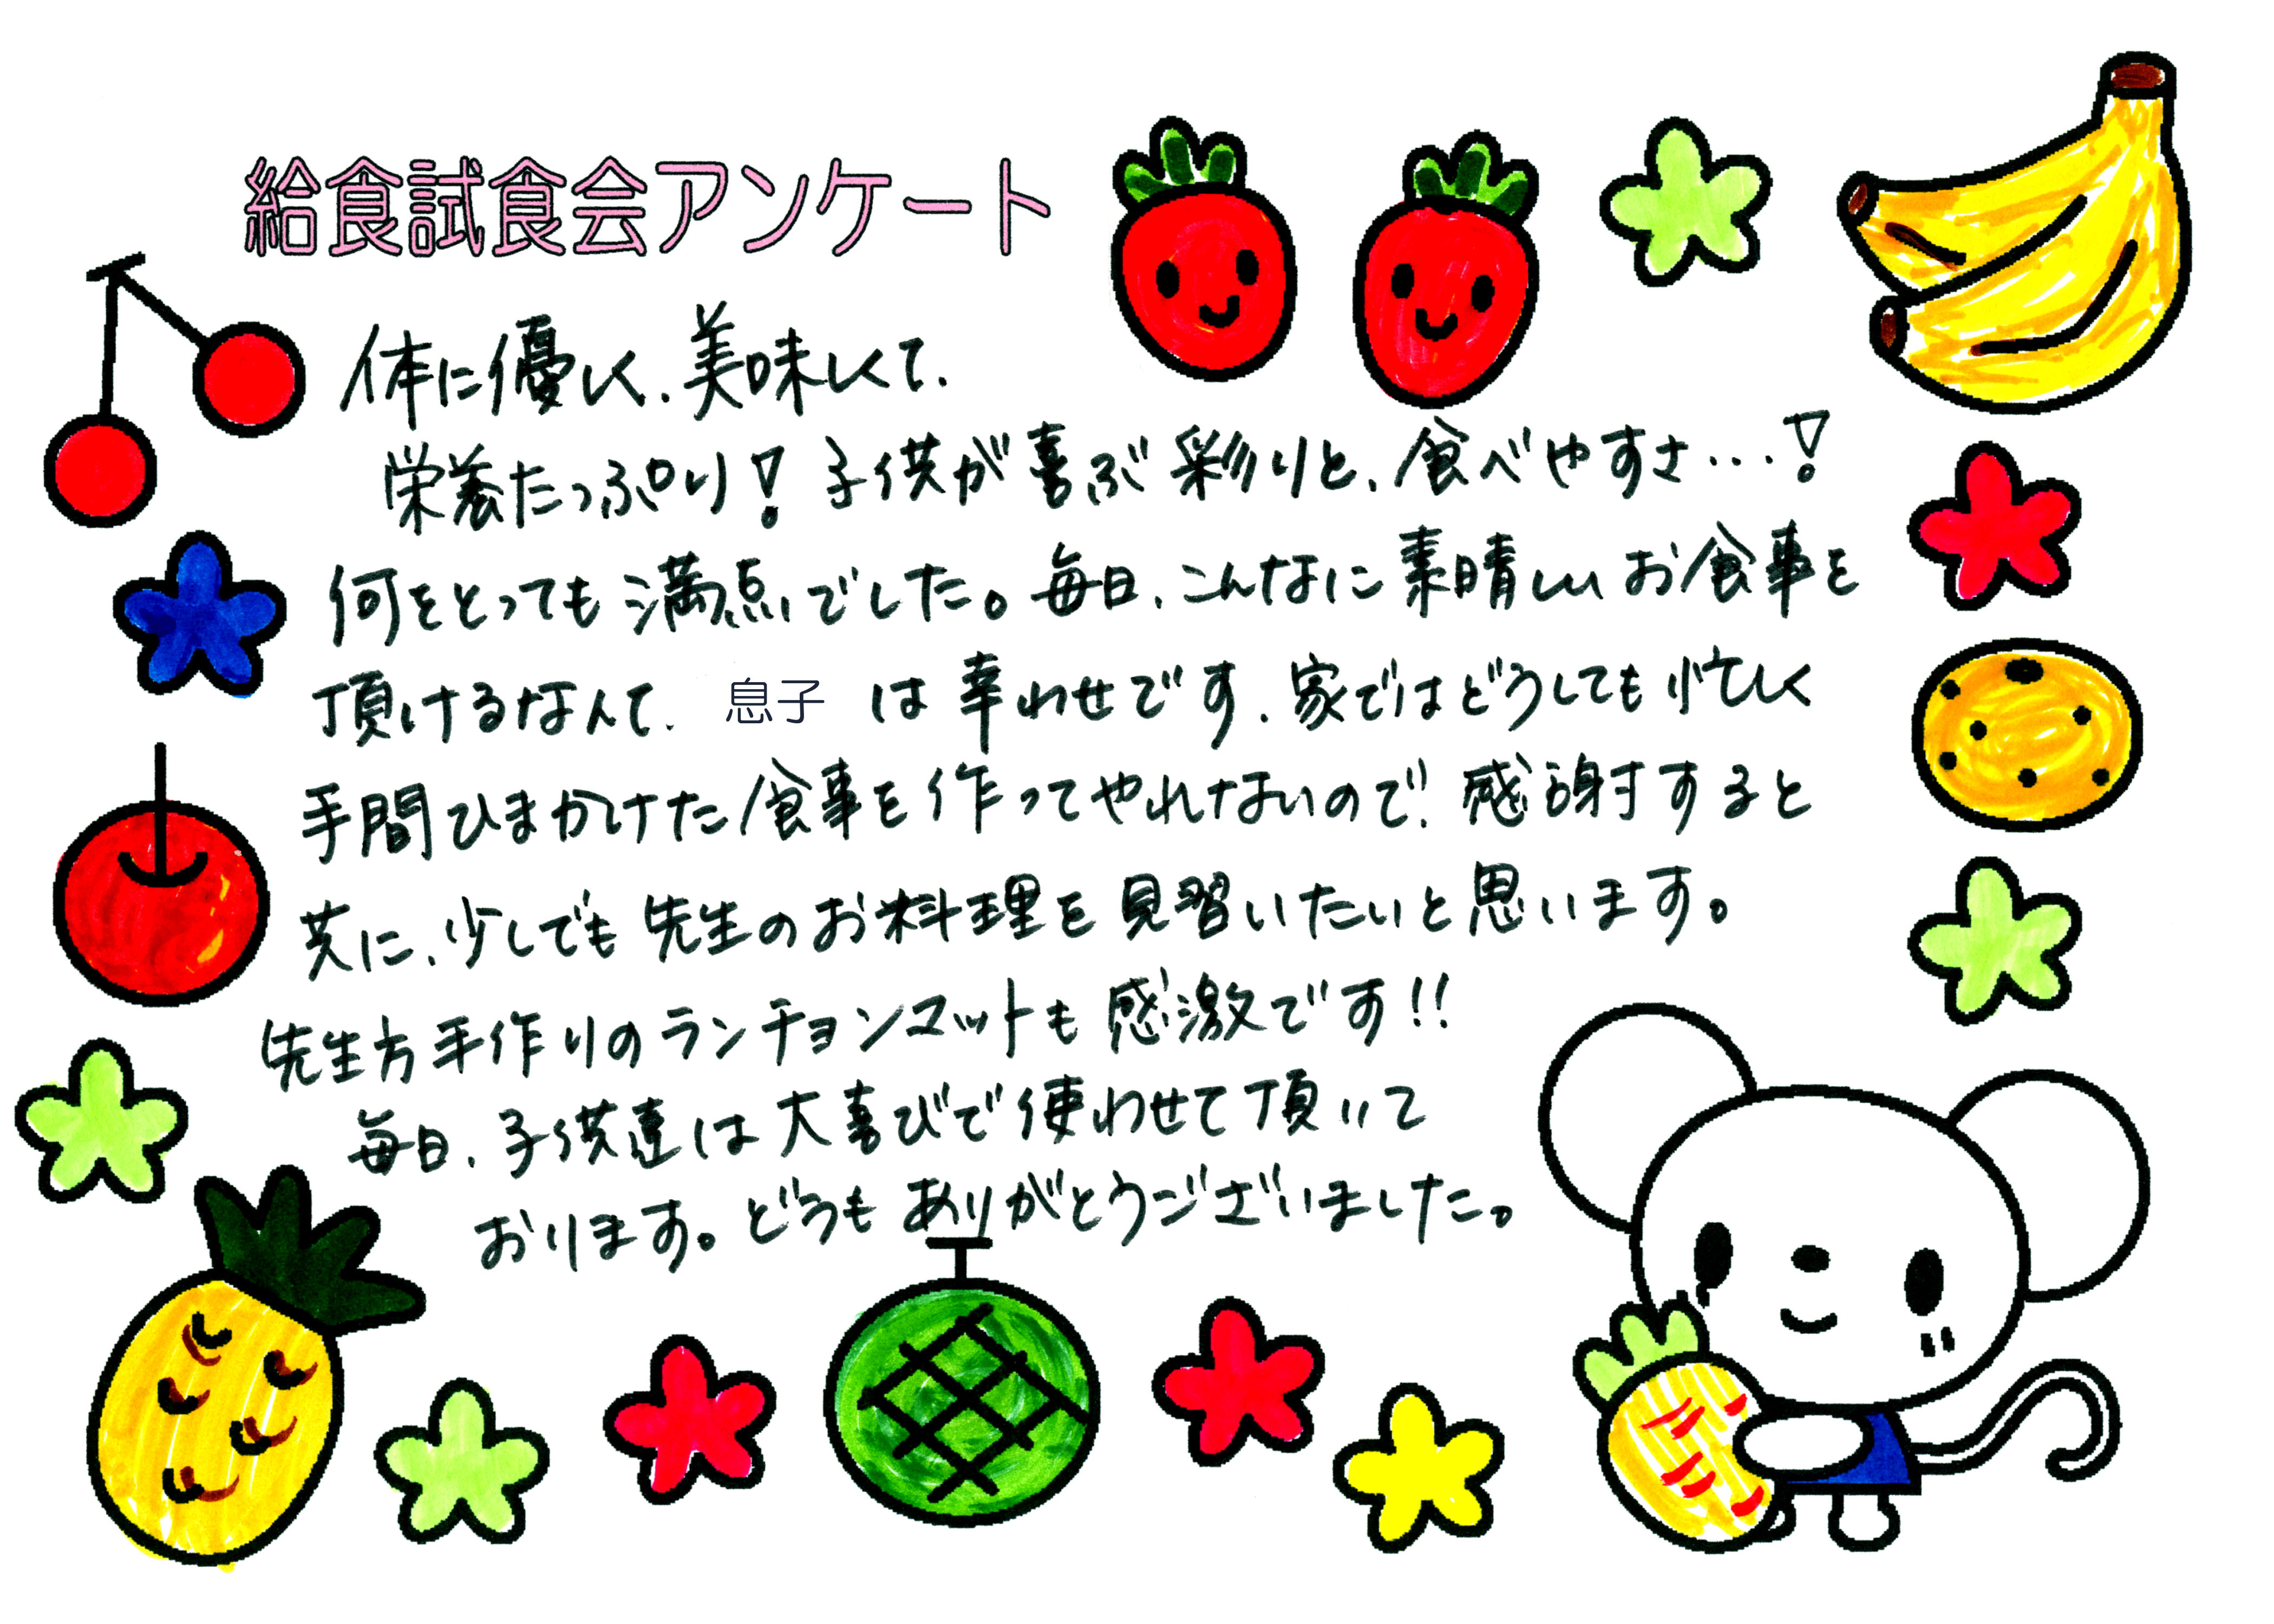 給食試食会アンケート
体に優しく、美味しくて、
栄養たっぷり！子供が喜ぶ彩りと、食べやすさ…！
何をとっても満点でした。毎日、こんなに素晴しいお食事を
頂けるなんて、息子は幸わせです。家ではどうしても忙しく
手間ひまかけた食事を作ってやれないので、感謝すると
共に、少しでも先生のお料理を見習いたいと思います。
先生方手作りのランチョンマットも感激です!!
毎日、子供達は大喜びで使わせて頂いて
おります。どうもありがとうございました。